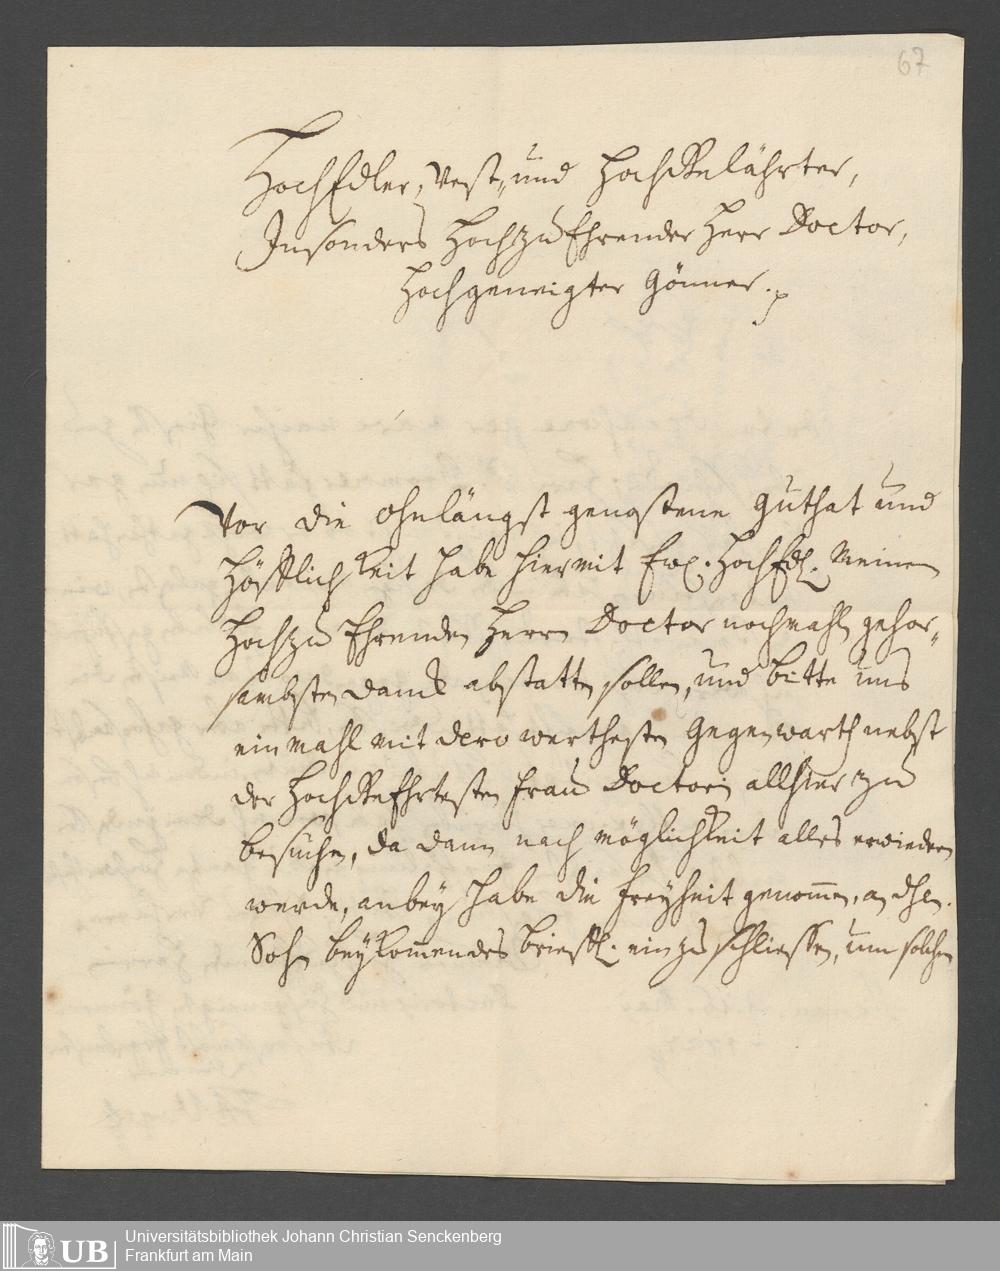 67
HochEdler, Vest, und HochGelährter,
Insonders HochzuEhrender Herr Doctor,
Hochgeneigter Gönner.
Vor die ohnlängst genossene Guthat und
Höfflichkeit habe hiermit Ew. HochEdl. Meinem
HochzuEhrenden Herrn Doctor nochmahln gehor-
sambsten danck abstatten sollen, und bitte uns
einmahl mit dero werthesten Gegenwarth nebst
der HochGeEhrtesten Frau Doctorin allhier zu
besuchen, da dann nach möglichkeit alles erwiedern
werde, anbey habe die Freyheit genommen, an
Sohn beykommendes brieffl. einzuschliessen, um solchen
Universitätsbibliothek Johann Christian Senckenberg
Frankfurt am Main
UB